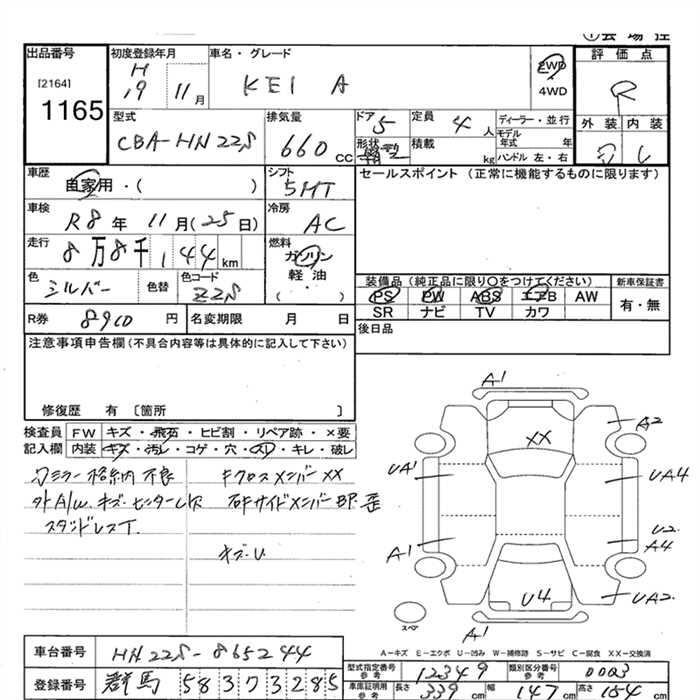 出品番号
[2164]
1165
初度登録年月
H
19 11 月
車名・グレード
KEI A
2WD
4WD
評価点
R
型式
CBA-HN22S
排気量
660 CC
ドア 5
形状
定員 4 人
積載 kg
ディーラー・並行
モデル
年式 年
ハンドル 左・右
外装 内装
車歴
自家用・( )
シフト
5MT
セールスポイント (正常に機能するものに限ります)
車検
R8 年 11 月(25 日)
冷房
AC
走行
8万8千144 km
燃料
ガソリン
軽油
( )
色
シルバー
色替
色コード
Z2S
装備品 (純正品に限り○をつけてください)
PS PW ABS エアB AW
SR ナビ TV カワ
新車保証書
有・無
R券 8910 円
名変期限 月 日
後日品
注意事項申告欄(不具合内容等は具体的に記入して下さい)
修復歴 有 〔箇所 〕
検査員 FW キズ・飛石・ヒビ割・リペア跡・×要
記入欄 内装 キズ・汚レ・コゲ・穴・スレ・キレ・破レ
カミラー格納不良
外A/W キズ・センターレス
スタンドレスT.
Fクロスメンバー XX
右Fサイドメンバー BP 歪
キズ・U
A1
A2
XX
UA1
UA4
A1
U2
A4
U4
UA2
A1
スペア
A-キズ E-エクボ U-凹み W-補修跡 S-サビ C-腐食 XX-交換済
車台番号 HN22S-865244
登録番号 群馬 583 73285
型式指定番号
参考
12349
類別区分番号
参考
0003
車庫証明用
参考
長さ 339 cm 幅 147 cm 高さ 154 cm